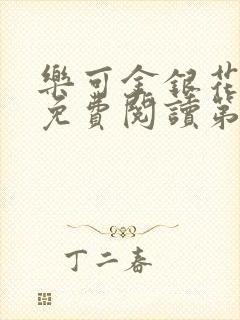 樂可金銀花
免費閱讀第
丁二春